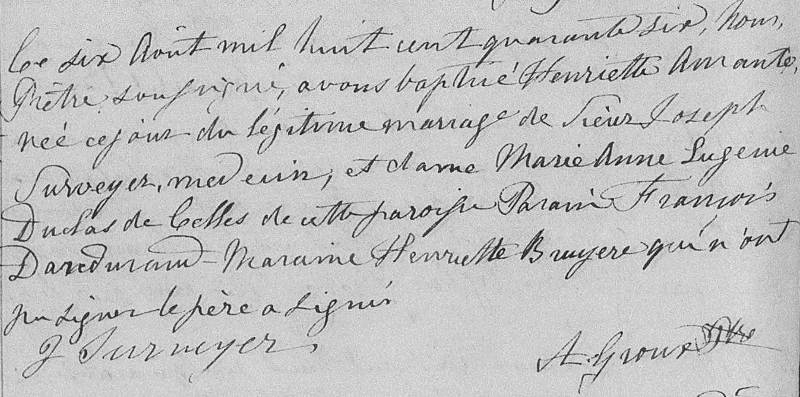 Le six Août mil huit cent quarante six, nous,
Prêtre soussigné, avons baptisé Henriette Amante,
née ce jour du légitime mariage de Sieur Joseph
Surveyer, medecin, et dame Marie Anne Eugenie
Duclos de Celles de cette paroisse Parain François
Dandurand Maraine Henriette Bruyere qui n'ont
pu signer le père a signé
J Surveyer
A. Groux Ptre